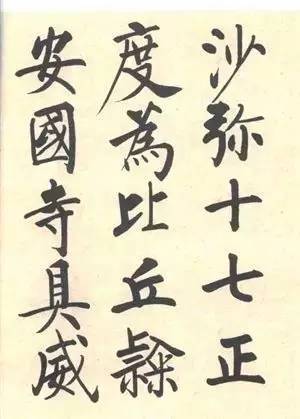 沙弥十七正
度為比丘𨽻
安國寺具威